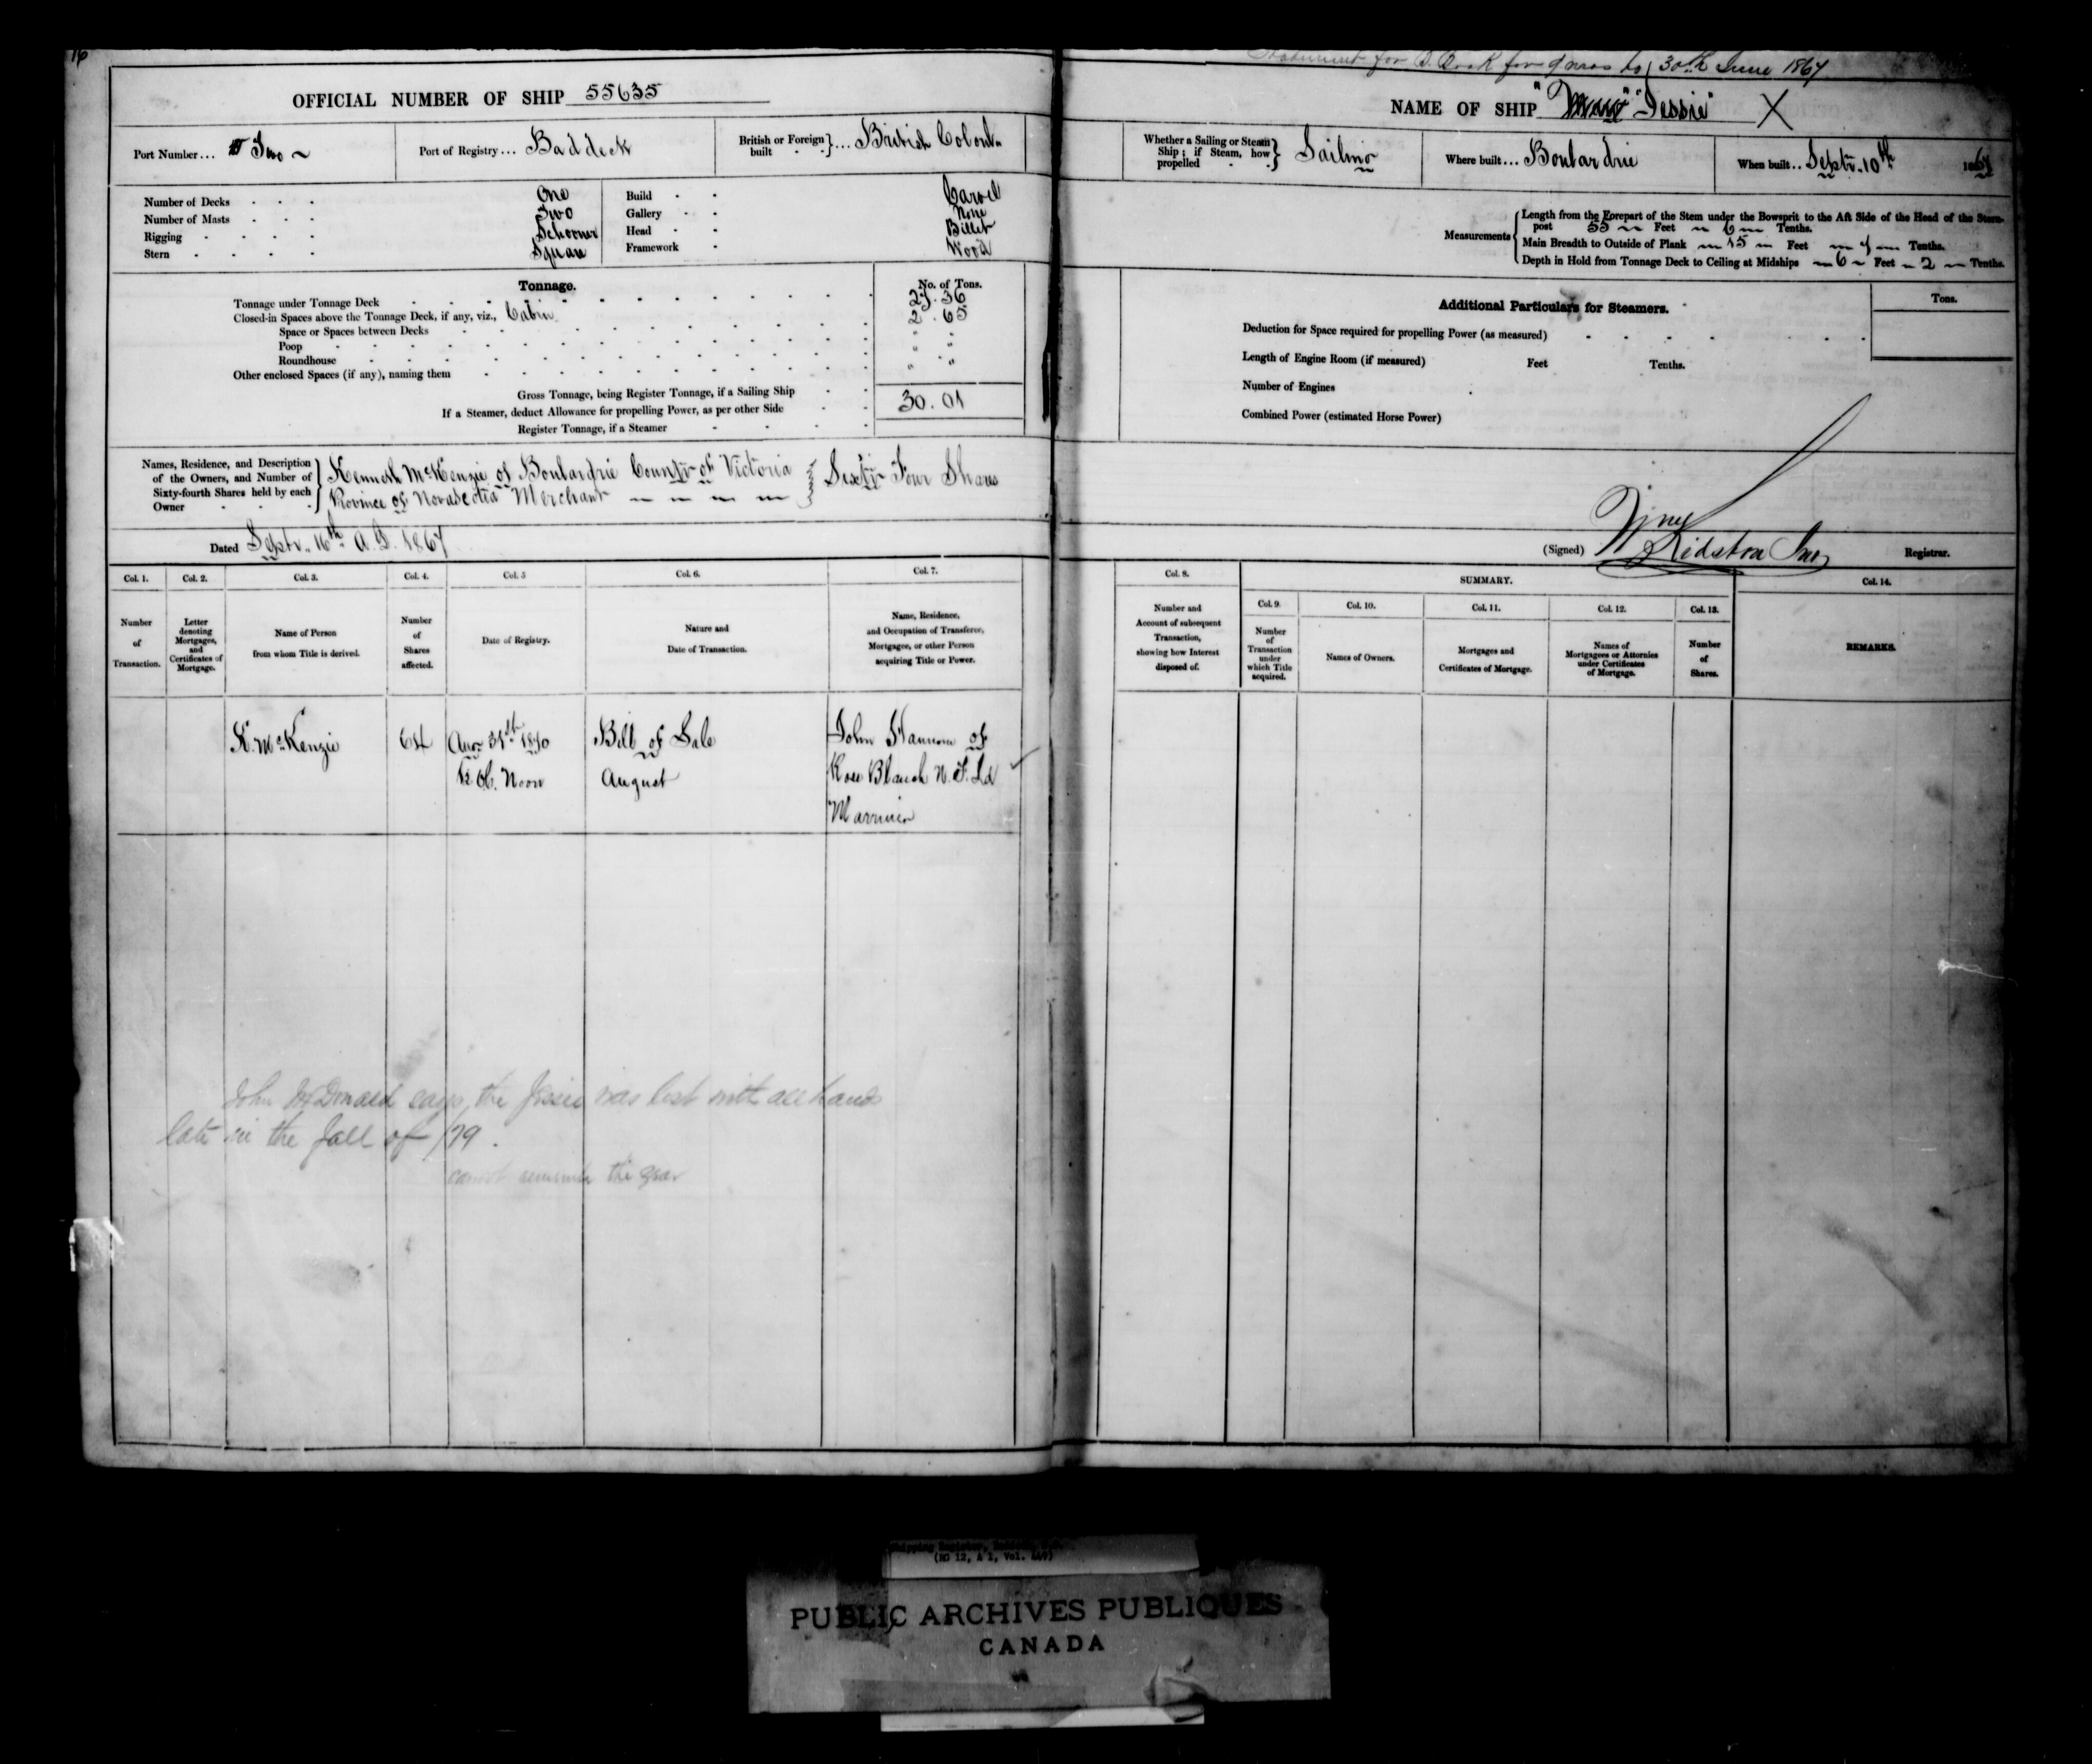 16
OFFICIAL NUMBER OF SHIP 55635
Port Number... Two
Port of Registry... Baddeck
British or Foreign built - - }... British Colonl.
Number of Decks - - - One
Number of Masts - - - Two
Rigging - - - - Schooner
Stern - - - - Square
Build - - Carvel
Gallery - - None
Head - - Billet
Framework - Wood
Tonnage.
No. of Tons.
Tonnage under Tonnage Deck 27.36
Closed-in Spaces above the Tonnage Deck, if any, viz., Cabin 2.65
Space or Spaces between Decks " "
Poop " "
Roundhouse " "
Other enclosed Spaces (if any), naming them
Gross Tonnage, being Register Tonnage, if a Sailing Ship 30.01
If a Steamer, deduct Allowance for propelling Power, as per other Side
Register Tonnage, if a Steamer
Names, Residence, and Description of the Owners, and Number of Sixty-fourth Shares held by each Owner
Kenneth McKenzie of Boulardrie County of Victoria
Province of Novascotia Merchant
Sixty Four Shares
Dated Septr. 16th A.D. 1867
Col. 1.
Number of Transaction.
Col. 2.
Letter denoting Mortgages, and Certificates of Mortgage.
Col. 3.
Name of Person from whom Title is derived.
Col. 4.
Number of Shares affected.
Col. 5
Date of Registry.
Col. 6.
Nature and Date of Transaction.
Col. 7.
Name, Residence, and Occupation of Transferee, Mortgagee, or other Person acquiring Title or Power.
K. McKenzie
64
Augt 31st 1870
12 O.C. Noon
Bill of Sale
August
John of
Rose Blanch N.F.Ld
Marriner
John McDonald says, the Jessie was lost with all hands
late in the fall of /79.
cannot remember the year
Statement for to 30th June 1867
NAME OF SHIP "Jessie" X
Whether a Sailing or Steam Ship; if Steam, how propelled } Sailing
Where built... Boulardrie
When built.. Septr. 10th 1867
Measurements
Length from the Forepart of the Stem under the Bowsprit to the Aft Side of the Head of the Stern-
post 55 Feet 6 Tenths.
Main Breadth to Outside of Plank 15 Feet 7 Tenths.
Depth in Hold from Tonnage Deck to Ceiling at Midships 6 Feet 2 Tenths.
Additional Particulars for Steamers.
Tons.
Deduction for Space required for propelling Power (as measured)
Length of Engine Room (if measured) Feet Tenths.
Number of Engines
Combined Power (estimated Horse Power)
(Signed) Kidston Jnr Registrar.
Col. 8.
Number and Account of subsequent Transaction, showing how Interest disposed of.
SUMMARY.
Col. 9.
Number of Transaction under which Title acquired.
Col. 10.
Names of Owners.
Col. 11.
Mortgages and Certificates of Mortgage.
Col. 12.
Names of Mortgagees or Attornies under Certificates of Mortgage.
Col. 13.
Number of Shares.
Col. 14.
REMARKS.
(RG 12, A 1, Vol. )
PUBLIC ARCHIVES PUBLIQUES
CANADA